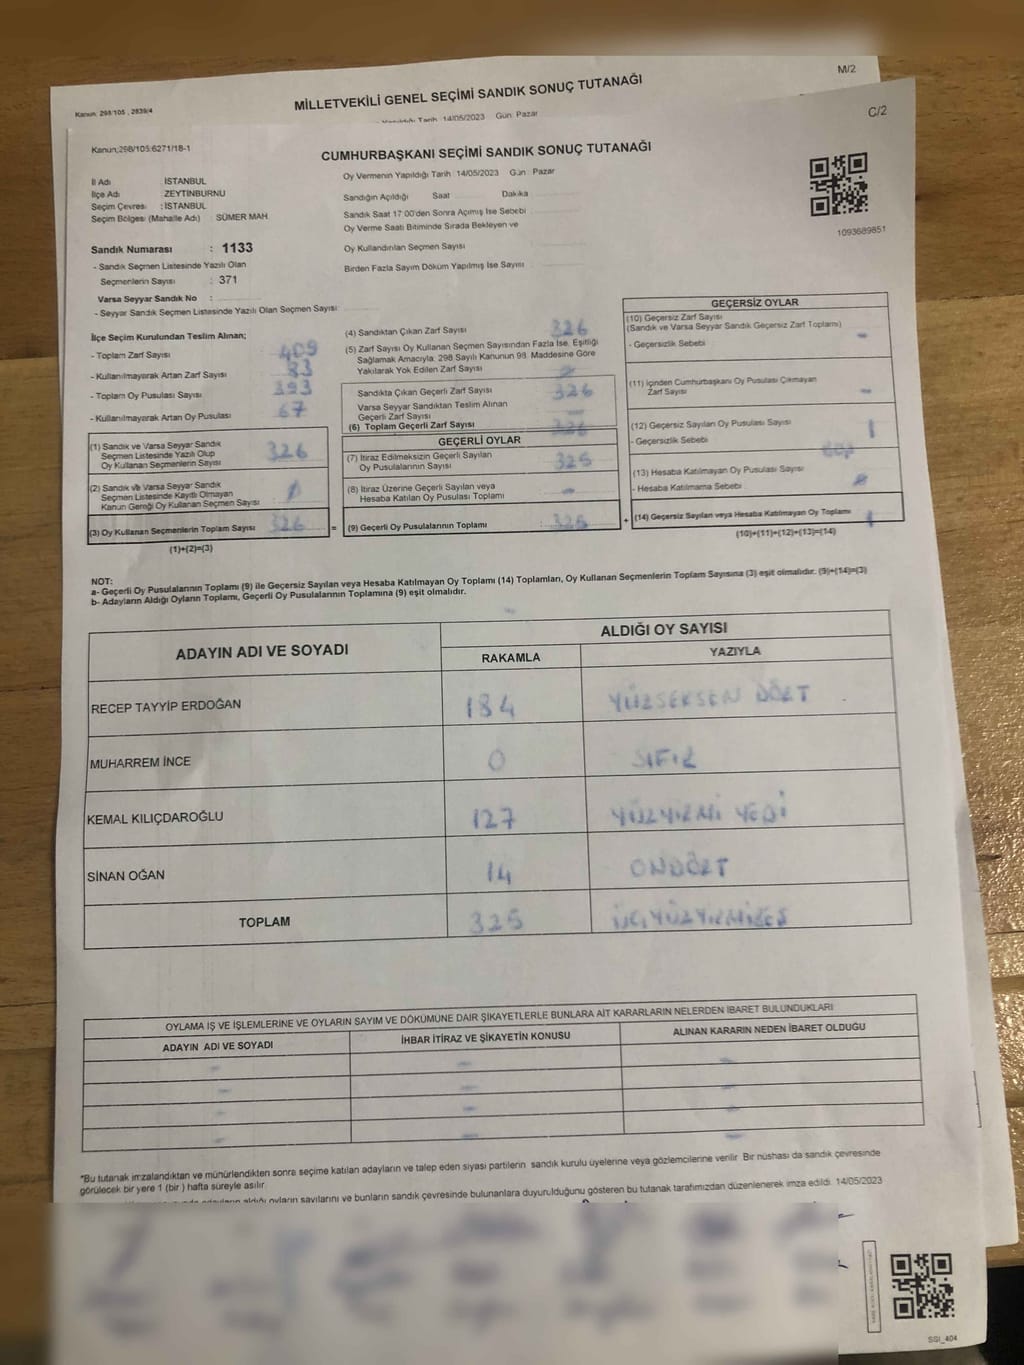 M/2
MİLLETVEKİLİ GENEL SEÇİMİ SANDIK SONUÇ TUTANAĞI
Kanun: 298/105 , 2839/4
Tarih 14/05/2023 Gün: Pazar
C/2
Kanun;298/105:6271/18-1
CUMHURBAŞKANI SEÇİMİ SANDIK SONUÇ TUTANAĞI
Oy Vermenin Yapıldığı Tarih 14/05/2023 Gün: Pazar
İl Adı : İSTANBUL
İlçe Adı : ZEYTİNBURNU
Seçim Çevresi : İSTANBUL
Seçim Bölgesi (Mahalle Adı) : SÜMER MAH.
Sandığın Açıldığı Saat Dakika
Sandık Saat 17:00'den Sonra Açımış İse Sebebi
Oy Verme Saati Bitiminde Sırada Bekleyen ve
Oy Kullandırılan Seçmen Sayısı
Birden Fazla Sayım Döküm Yapılmış İse Sayısı
1093689851
Sandık Numarası : 1133
- Sandık Seçmen Listesinde Yazılı Olan
Seçmenlerin Sayısı : 371
Varsa Seyyar Sandık No :
- Seyyar Sandık Seçmen Listesinde Yazılı Olan Seçmen Sayısı:
İlçe Seçim Kurulundan Teslim Alınan;
- Toplam Zarf Sayısı 409
- Kullanılmayarak Artan Zarf Sayısı 83
- Toplam Oy Pusulası Sayısı 393
- Kullanılmayarak Artan Oy Pusulası 67
(1) Sandık ve Varsa Seyyar Sandık
Seçmen Listesinde Yazılı Olup
Oy Kullanan Seçmenlerin Sayısı 326
(2) Sandık ve Varsa Seyyar Sandık
Seçmen Listesinde Kayıtlı Olmayan
Kanun Gereği Oy Kullanan Seçmen Sayısı
(3) Oy Kullanan Seçmenlerin Toplam Sayısı 326 =
(1)+(2)=(3)
(4) Sandıktan Çıkan Zarf Sayısı 326
(5) Zarf Sayısı Oy Kullanan Seçmen Sayısından Fazla İse, Eşitliği
Sağlamak Amacıyla: 298 Sayılı Kanunun 98. Maddesine Göre
Yakılarak Yok Edilen Zarf Sayısı
Sandıkta Çıkan Geçerli Zarf Sayısı 326
Varsa Seyyar Sandıktan Teslim Alınan
Geçerli Zarf Sayısı —
(6) Toplam Geçerli Zarf Sayısı 326
GEÇERLİ OYLAR
(7) İtiraz Edilmeksizin Geçerli Sayılan
Oy Pusulalarının Sayısı 325
(8) İtiraz Üzerine Geçerli Sayılan veya
Hesaba Katılan Oy Pusulası Toplamı -
(9) Geçerli Oy Pusulalarının Toplamı : 325 +
GEÇERSİZ OYLAR
(10) Geçersiz Zarf Sayısı
(Sandık ve Varsa Seyyar Sandık Geçersiz Zarf Toplamı)
- Geçersizlik Sebebi -
(11) İçinden Cumhurbaşkanı Oy Pusulası Çıkmayan
Zarf Sayısı -
(12) Geçersiz Sayılan Oy Pusulası Sayısı 1
- Geçersizlik Sebebi
(13) Hesaba Katılmayan Oy Pusulası Sayısı
- Hesaba Katılmama Sebebi
(14) Geçersiz Sayılan veya Hesaba Katılmayan Oy Toplamı 1
(10)+(11)+(12)+(13)=(14)
NOT:
a- Geçerli Oy Pusulalarının Toplamı (9) ile Geçersiz Sayılan veya Hesaba Katılmayan Oy Toplamı (14) Toplamları, Oy Kullanan Seçmenlerin Toplam Sayısına (3) eşit olmalıdır. (9)+(14)=(3)
b- Adayların Aldığı Oyların Toplamı, Geçerli Oy Pusulalarının Toplamına (9) eşit olmalıdır.
ADAYIN ADI VE SOYADI
ALDIĞI OY SAYISI
RAKAMLA YAZIYLA
RECEP TAYYİP ERDOĞAN 184 YÜZSEKSEN DÖRT
MUHARREM İNCE 0 SIFIR
KEMAL KILIÇDAROĞLU 127 YÜZYİRMİ YEDİ
SİNAN OĞAN 14 ONDÖRT
TOPLAM 325 ÜÇYÜZYİRMİBEŞ
OYLAMA İŞ VE İŞLEMLERİNE VE OYLARIN SAYIM VE DÖKÜMÜNE DAİR ŞİKAYETLERLE BUNLARA AİT KARARLARIN NELERDEN İBARET BULUNDUKLARI
ADAYIN ADI VE SOYADI İHBAR İTİRAZ VE ŞİKAYETİN KONUSU ALINAN KARARIN NEDEN İBARET OLDUĞU
- - -
- - -
- - -
- - -
*Bu tutanak imzalandıktan ve mühürlendikten sonra seçime katılan adayların ve talep eden siyasi partilerin sandık kurulu üyelerine veya gözlemcilerine verilir. Bir nüshası da sandık çevresinde
görülecek bir yere 1 (bir ) hafta süreyle asılır.
aldığı oyların sayılarını ve bunların sandık çevresinde bulunanlara duyurulduğunu gösteren bu tutanak tarafımızdan düzenlenerek imza edildi. 14/05/2023
SSI_404